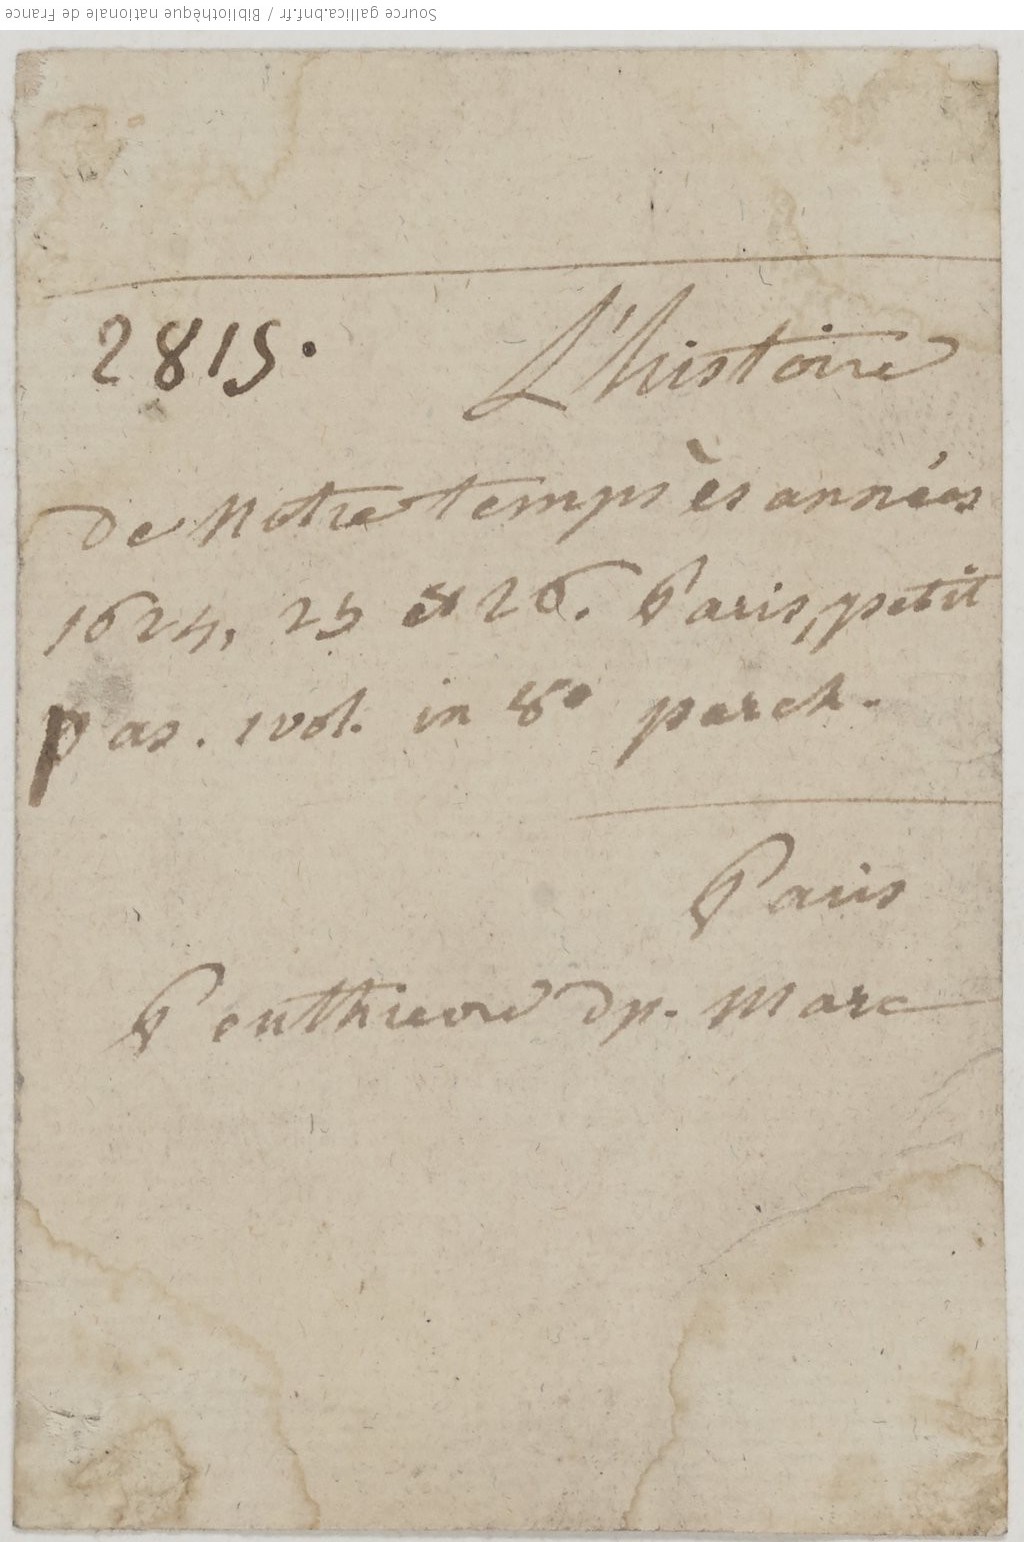 Source gallica.bnf.fr / Bibliothèque nationale de France
2815. L'histoire
De Notre temps ès années
1624, 25 et 26. Paris, petit
pas. 1 vol. in 8° parch.
Paris
Penthievre dp. Marc